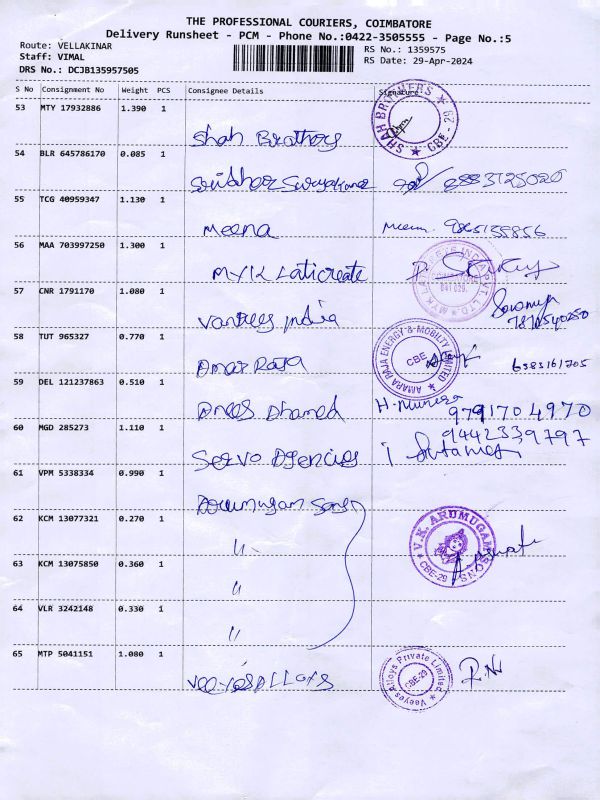 THE PROFESSIONAL COURIERS, COIMBATORE
Delivery Runsheet - PCM - Phone No.:0422-3505555 - Page No.:5
Route: VELLAKINAR
Staff: VIMAL
DRS No.: DCJB135957505
RS No.: 1359575
RS Date: 29-Apr-2024
S No Consignment No Weight PCS Consignee Details Signature
53 MTY 17932886 1.390 1
Shah Brothers
SHAH BROTHERS CBE - 29
54 BLR 645786170 0.085 1
55 TCG 40959347 1.130 1
Meena
56 MAA 703997250 1.300 1
MYK Laticreate
57 CNR 1791170 1.080 1
India
7810540250
58 TUT 965327 0.770 1
Amar Raja
AMARA RAJA ENERGY & MOBILITY LIMITED CBE
6383161705
59 DEL 121237863 0.510 1
Anees Ahamed
9791704970
60 MGD 285273 1.110 1
Servo Agencies
9442339797
61 VPM 5338334 0.990 1
Sons
62 KCM 13077321 0.270 1
"
V.K. ARUMUGAM SONS CBE-29
63 KCM 13075850 0.360 1
"
64 VLR 3242148 0.330 1
"
65 MTP 5041151 1.080 1
Vee yes Alloys
Veeyes Alloys Private Limited CBE-29